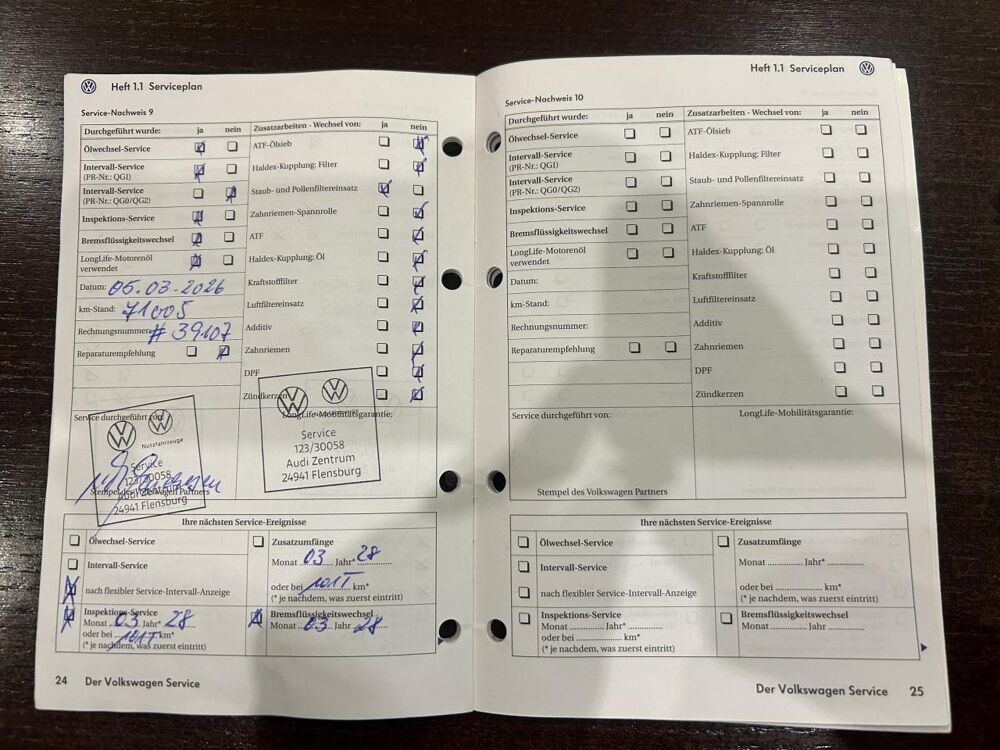 Heft 1.1 Serviceplan
Service-Nachweis 9
Durchgeführt wurde: ja nein Zusatzarbeiten - Wechsel von: ja nein
Ölwechsel-Service
ATF-Ölsieb
Intervall-Service
(PR-Nr.: QG1)
Haldex-Kupplung: Filter
Intervall-Service
(PR-Nr.: QG0/QG2)
Staub- und Pollenfiltereinsatz
Inspektions-Service
Zahnriemen-Spannrolle
Bremsflüssigkeitswechsel
ATF
LongLife-Motorenöl
verwendet
Haldex-Kupplung: Öl
Datum: 05.03.2026
Kraftstofffilter
km-Stand: 71005
Luftfiltereinsatz
Rechnungsnummer: # 39107
Additiv
Reparaturempfehlung
Zahnriemen
DPF
Zündkerzen
Service durchgeführt von:
LongLife-Mobilitätsgarantie:
Nutzfahrzeuge
Service
123/30058
Audi Zentrum
24941 Flensburg
Stempel des Volkswagen Partners
Service
123/30058
Audi Zentrum
24941 Flensburg
Ihre nächsten Service-Ereignisse
Ölwechsel-Service
Intervall-Service
nach flexibler Service-Intervall-Anzeige
Zusatzumfänge
Monat 03 Jahr* 28
oder bei 101T km*
(* je nachdem, was zuerst eintritt)
Inspektions-Service
Monat 03 Jahr* 28
oder bei 101T km*
(* je nachdem, was zuerst eintritt)
Bremsflüssigkeitswechsel
Monat 03 Jahr 28
24 Der Volkswagen Service
Heft 1.1 Serviceplan
Service-Nachweis 10
Durchgeführt wurde: ja nein Zusatzarbeiten - Wechsel von: ja nein
Ölwechsel-Service
ATF-Ölsieb
Intervall-Service
(PR-Nr.: QG1)
Haldex-Kupplung: Filter
Intervall-Service
(PR-Nr.: QG0/QG2)
Staub- und Pollenfiltereinsatz
Inspektions-Service
Zahnriemen-Spannrolle
Bremsflüssigkeitswechsel
ATF
LongLife-Motorenöl
verwendet
Haldex-Kupplung: Öl
Datum:
Kraftstofffilter
km-Stand:
Luftfiltereinsatz
Rechnungsnummer:
Additiv
Reparaturempfehlung
Zahnriemen
DPF
Zündkerzen
Service durchgeführt von:
LongLife-Mobilitätsgarantie:
Stempel des Volkswagen Partners
Ihre nächsten Service-Ereignisse
Ölwechsel-Service
Intervall-Service
nach flexibler Service-Intervall-Anzeige
Zusatzumfänge
Monat ............ Jahr* ............
oder bei ............ km*
(* je nachdem, was zuerst eintritt)
Inspektions-Service
Monat ............ Jahr* ............
oder bei ............ km*
(* je nachdem, was zuerst eintritt)
Bremsflüssigkeitswechsel
Monat ............ Jahr ............
Der Volkswagen Service 25